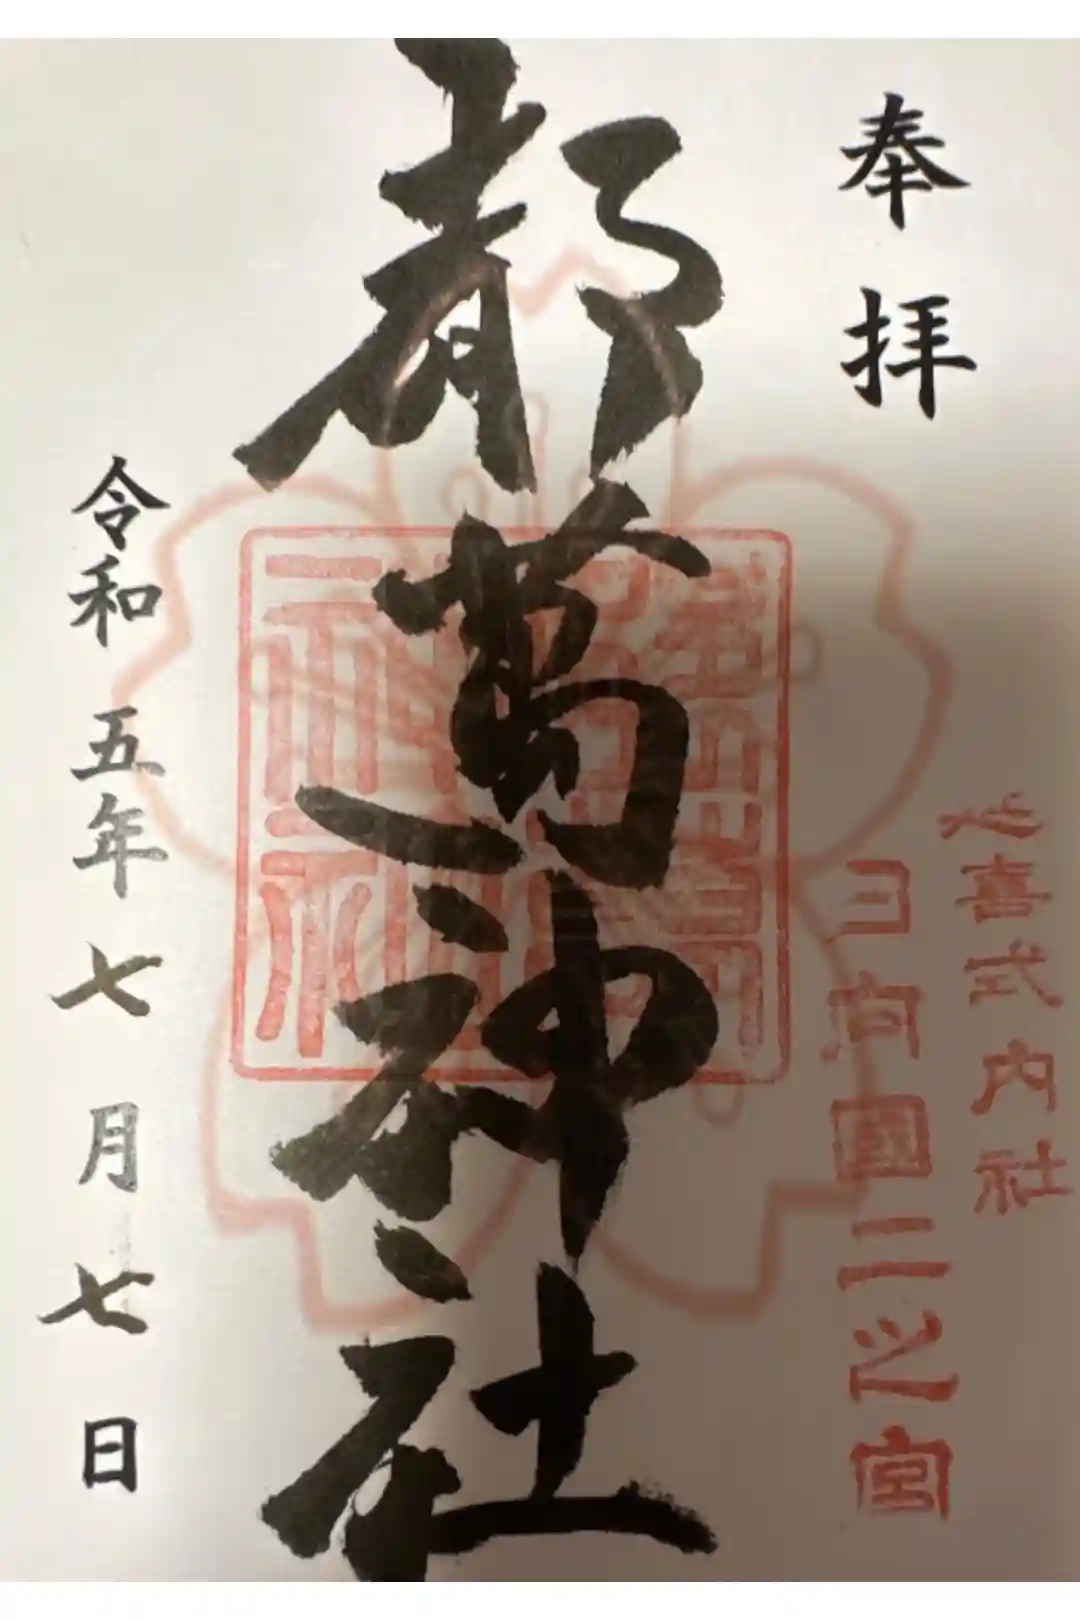 奉拝
延喜式内社
日向國二之宮
都萬神社
令和五年七月七日